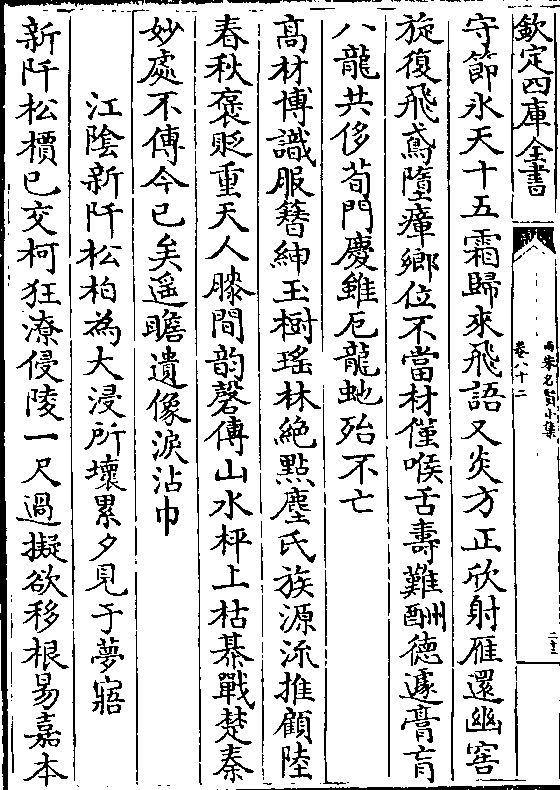 欽定四庫全書
兩宋名賢小集
卷八十二
守節氷天十五霜歸來飛語又炎方正欣射雁還幽窖
旋復飛鳶墮瘴鄉位不當材僅喉舌壽難酬德遽膏肓
八龍共侈荀門慶雖厄龍虵殆不亡
髙材博識服簪紳玉樹瑶林絶點塵氏族源流推顧陸
春秋褒貶重天人膝間韵磬傳山水枰上枯棊戰楚秦
妙處不傳今已矣遥瞻遺像淚沾巾
江陰新阡松柏為大浸所壞累夕見于夢寤
新阡松檟已交柯狂潦侵陵一尺過擬欲移根易嘉本